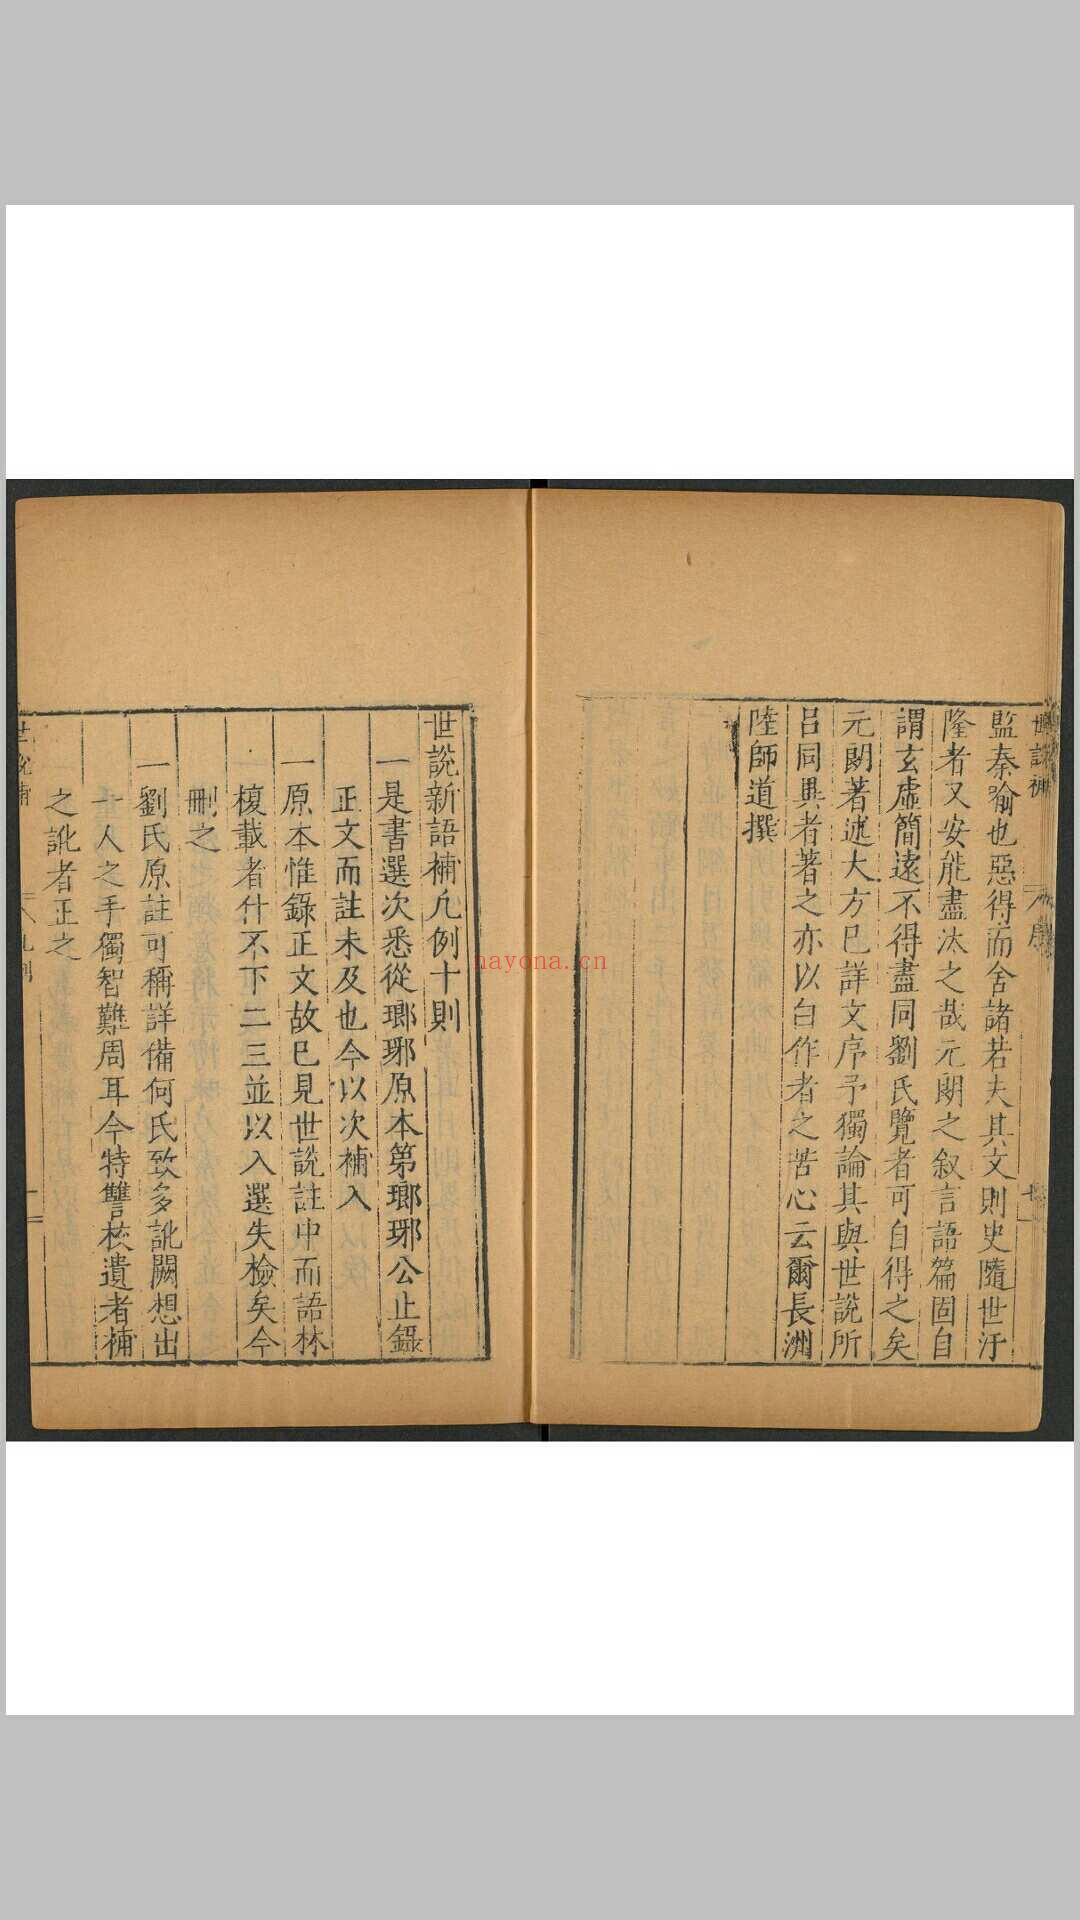 世說補
序
監秦喻也惡得而舍諸若夫其文則史隨世汙
隆者又安能盡汰之哉元朗之叙言語篇固自
謂玄虛簡遠不得盡同劉氏覽者可自得之矣
元朗著述大方已詳文序予獨論其與世說所
呂同異者著之亦以白作者之苦心云爾長洲
陸師道撰
世說新語補凡例十則
一是書選次悉從瑯琊原本第瑯琊公止錄
正文而註未及也今以次補入
一原本惟錄正文故巳見世說註中而語林
複載者什不下二三並以入選失檢矣今
刪之
一劉氏原註可稱詳備何氏致多訛闕想出
一人之手獨智難周耳今特讐校遺者補
之訛者正之
nayona.cn